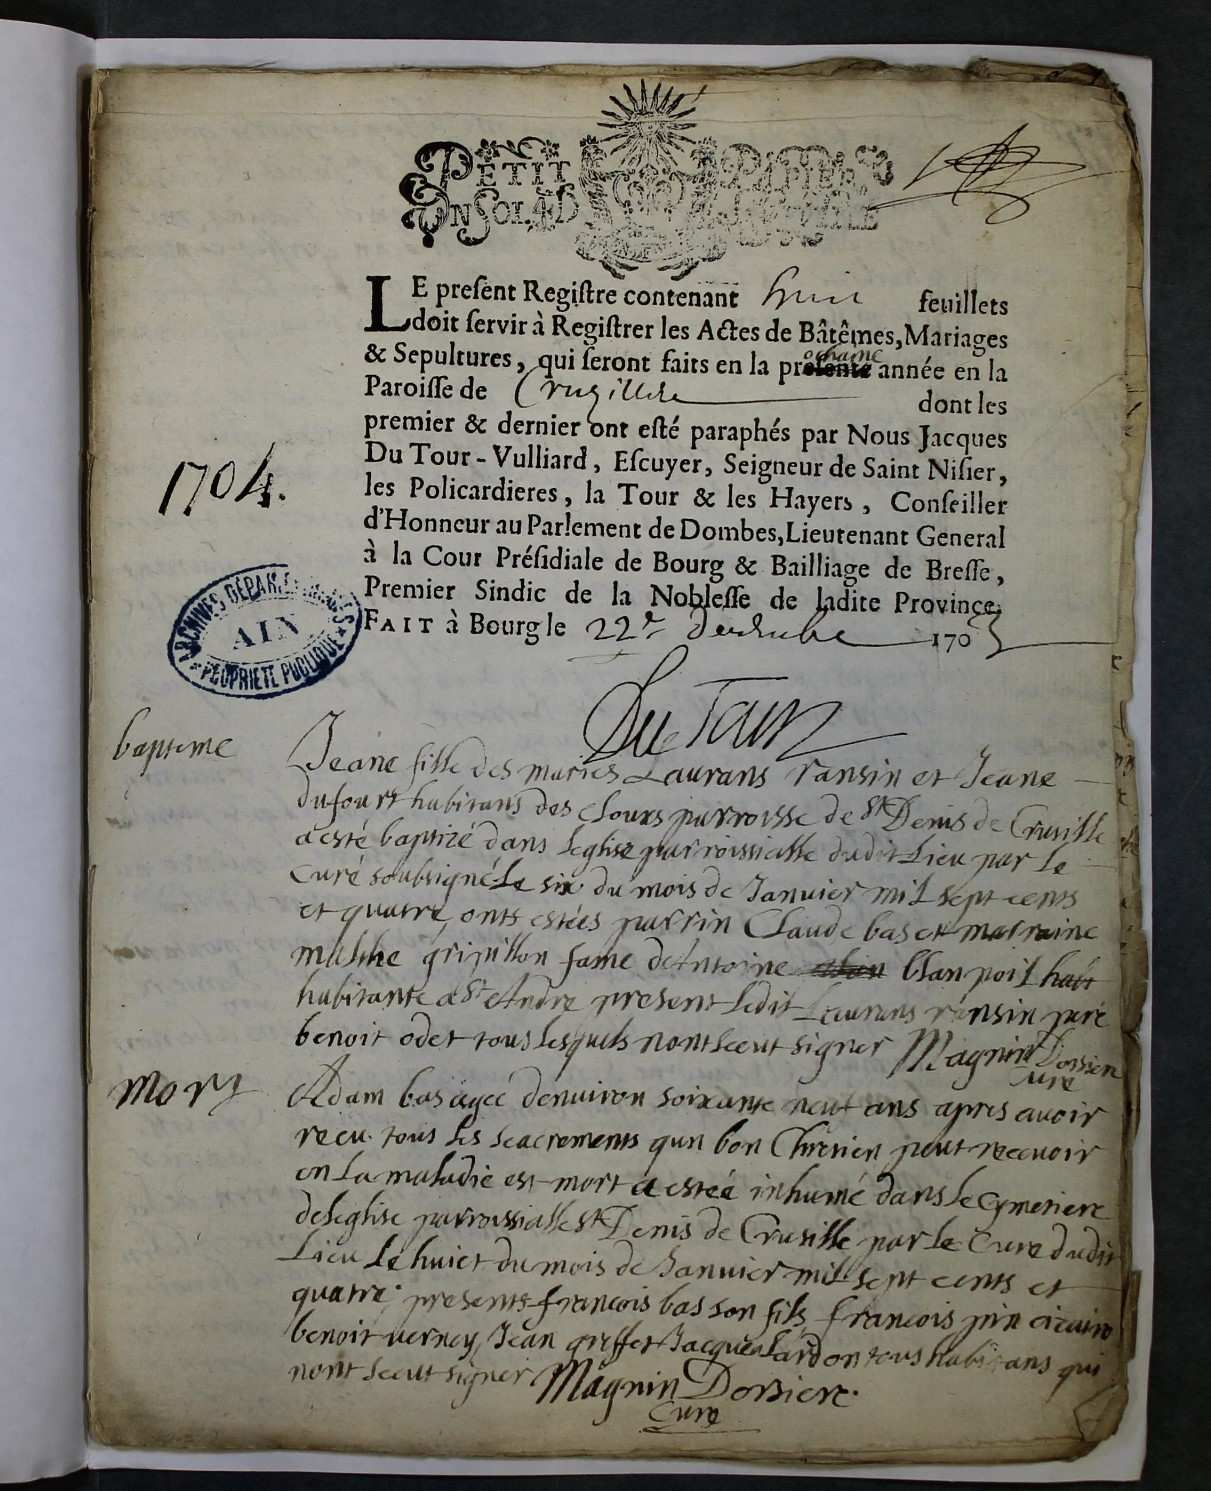 PETIT PAPIER
UN SOL 4 D
LE preſent Regiſtre contenant huit feuillets
doit ſervir à Regiſtrer les Actes de Bâtêmes, Mariages
& Sepultures, qui ſeront faits en la prochaine année en la
Paroiſſe de Cruzillde dont les
premier & dernier ont eſté paraphés par Nous Jacques
Du Tour-Vulliard, Eſcuyer, Seigneur de Saint Niſier,
les Policardieres, la Tour & les Hayers, Conſeiller
1704.
d'Honneur au Parlement de Dombes, Lieutenant General
à la Cour Préſidiale de Bourg & Bailliage de Breſſe,
Premier Sindic de la Nobleſſe de ladite Province,
FAIT à Bourg le 22e decembre 1703
ARCHIVES DÉPARTEMENTALES
AIN
PROPRIÉTÉ PUBLIQUE
Du Tour
bapteme
Jeane fille des mariés Laurans ransin et Jeane
dufour habitans des Cloux parroisse de St Denis de Crusille
a esté baptizé dans leglise parroissialle dudit Lieu par le
Curé soubsigné Le six du mois de Janvier mil sept cents
et quatre, onts estées parrin Claude bas et marraine
mathie gripillon fame de Antoine blanpoil habt
habitante a St Andre present Ledit Laurans ransin peré
benoit odet tous lesquels nont sceut signer Magnin Dorsiere
Cure
mort
Adam bas agée denuiron soixante neuf ans apres avoir
recu tous les seacrements qun bon Chretien peut recevoir
en La maladie est mort a estée inhumé dans le Cymetiere
deleglise parroissialle St Denis de Crusille par le Curé dudit
Lieu Le huict du mois de Janvier mil sept cents et
quatre presents francois bas son fils francois pin
benoit verney, Jean greffet Jacque Lardon tous habitans qui
nont sceut signer Magnin Dorsiere.
Curé